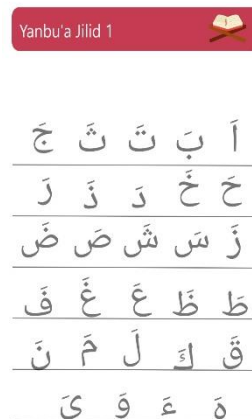 Yanbu'a Jilid 1
اَ بَ تَ ثَ جَ
حَ خَ دَ ذَ رَ
زَ سَ شَ صَ ضَ
طَ ظَ عَ غَ فَ
قَ كَ لَ مَ نَ
هَ ءَ وَ يَ